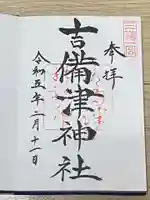 奉拝
吉備津神社
令和五年二月十一日